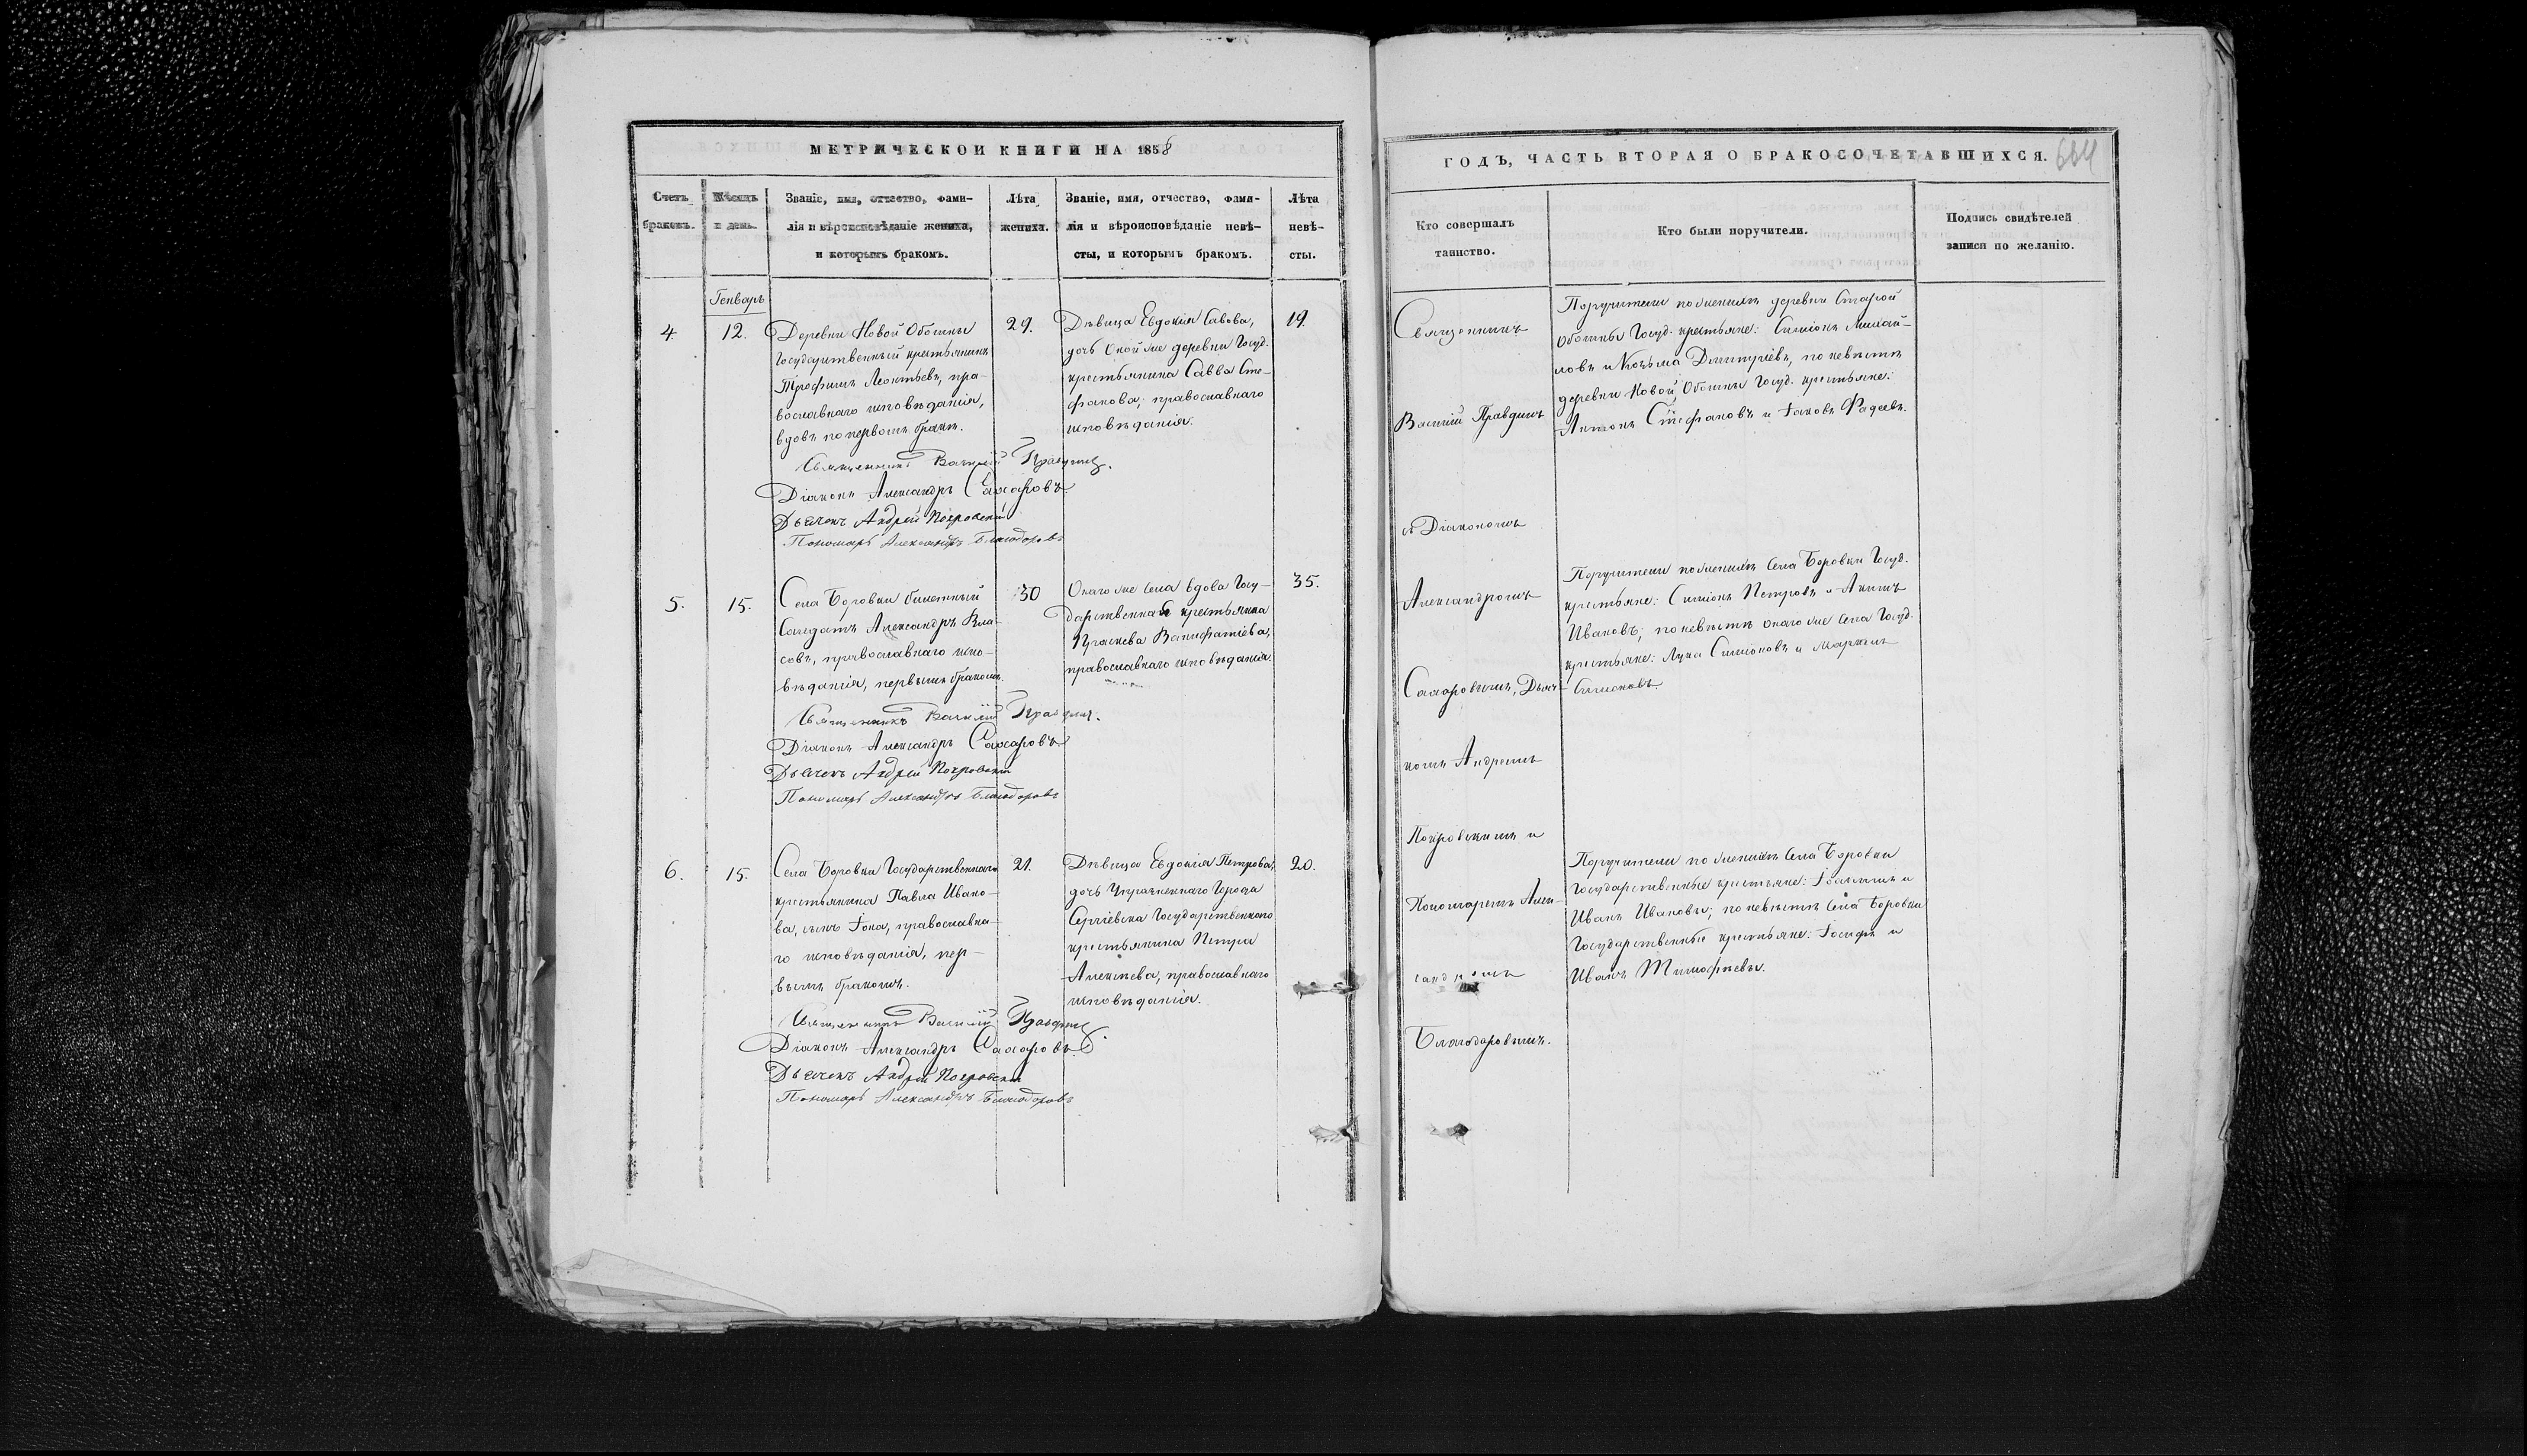 МЕТРИЧЕСКОЙ КНИГИ НА 1858
Счетъ браковъ.
Мѣсяцъ и день.
Званіе, имя, отчество, фами-
лія и вѣроисповѣданіе жениха,
и которымъ бракомъ.
Лѣта
жениха.
Званіе, имя, отчество, фами-
лія и вѣроисповѣданіе невѣ-
сты, и которымъ бракомъ.
Лѣта
невѣ-
сты.
Генварь
4.
12.
Деревни Новой
Государственный крестьянинъ
Трофимъ Леонтьевъ, пра-
вославнаго исповѣданія,
вдовъ по первомъ бракѣ.
29.
Дѣвица Евдокія Савова,
дочь Оной же деревни Госуд.
крестьянина Савва Сте-
фанова, православнаго
исповѣданія.
19.
Священникъ Василій Правдинъ.
Діаконъ Александръ Сахаровъ
Дьячекъ Андрей Покровскій
Пономарь Александръ Благодаровъ
5.
15.
Села Боровки билетный
Солдатъ Александръ Вла-
совъ, православнаго испо-
вѣданія, первымъ бракомъ.
30
Онаго же Села вдова Госу-
дарственная крестьянка
Праскева Ванифатіева,
православнаго исповѣданія.
35.
Священникъ Василій Правдинъ.
Діаконъ Александръ Сахаровъ
Дьячекъ Андрей Покровскій
Пономарь Александръ Благодаровъ
6.
15.
Села Боровки Государственнаго
крестьянина Павла Ивано-
ва, сынъ Іона, православна-
го исповѣданія, пер-
вымъ бракомъ.
21.
Дѣвица Евдокія Петрова,
дочь Упраздненнаго Города
Сергіевска Государственнаго
крестьянина Петра
Алексѣева, православнаго
исповѣданія.
20.
Священникъ Василій Правдинъ.
Діаконъ Александръ Сахаровъ.
Дьячекъ Андрей Покровскій
Пономарь Александръ Благодаровъ
ГОДЪ, ЧАСТЬ ВТОРАЯ О БРАКОСОЧЕТАВШИХСЯ.
Кто совершалъ
таинство.
Кто были поручители.
Подпись свидѣтелей
записи по желанію.
Священникъ
Василій Правдинъ
съ Діакономъ
Александромъ
Сахаровымъ, Дьяч-
комъ Андреемъ
Покровскимъ и
Пономаремъ Алек-
сандромъ
Благодаровымъ.
Поручители по женихѣ деревни Старой
Госуд. крестьяне: Симіонъ Михай-
ловъ и Козьма Димитріевъ, по невѣстѣ
деревни Новой Госуд. крестьяне:
Антонъ Стефановъ и Іаковъ Фадеевъ.
Поручители по женихѣ Села Боровки Госуд.
крестьяне: Симіонъ Петровъ и Акимъ
Ивановъ; по невѣстѣ онаго же Села Госуд.
крестьяне: Лука Симіоновъ и
Симіоновъ.
Поручители по женихѣ Села Боровки
Государственные крестьяне: Іоакимъ и
Иванъ Ивановы; по невѣстѣ Села Боровки
Государственные крестьяне: Іосифъ и
Иванъ Тимофѣевы.